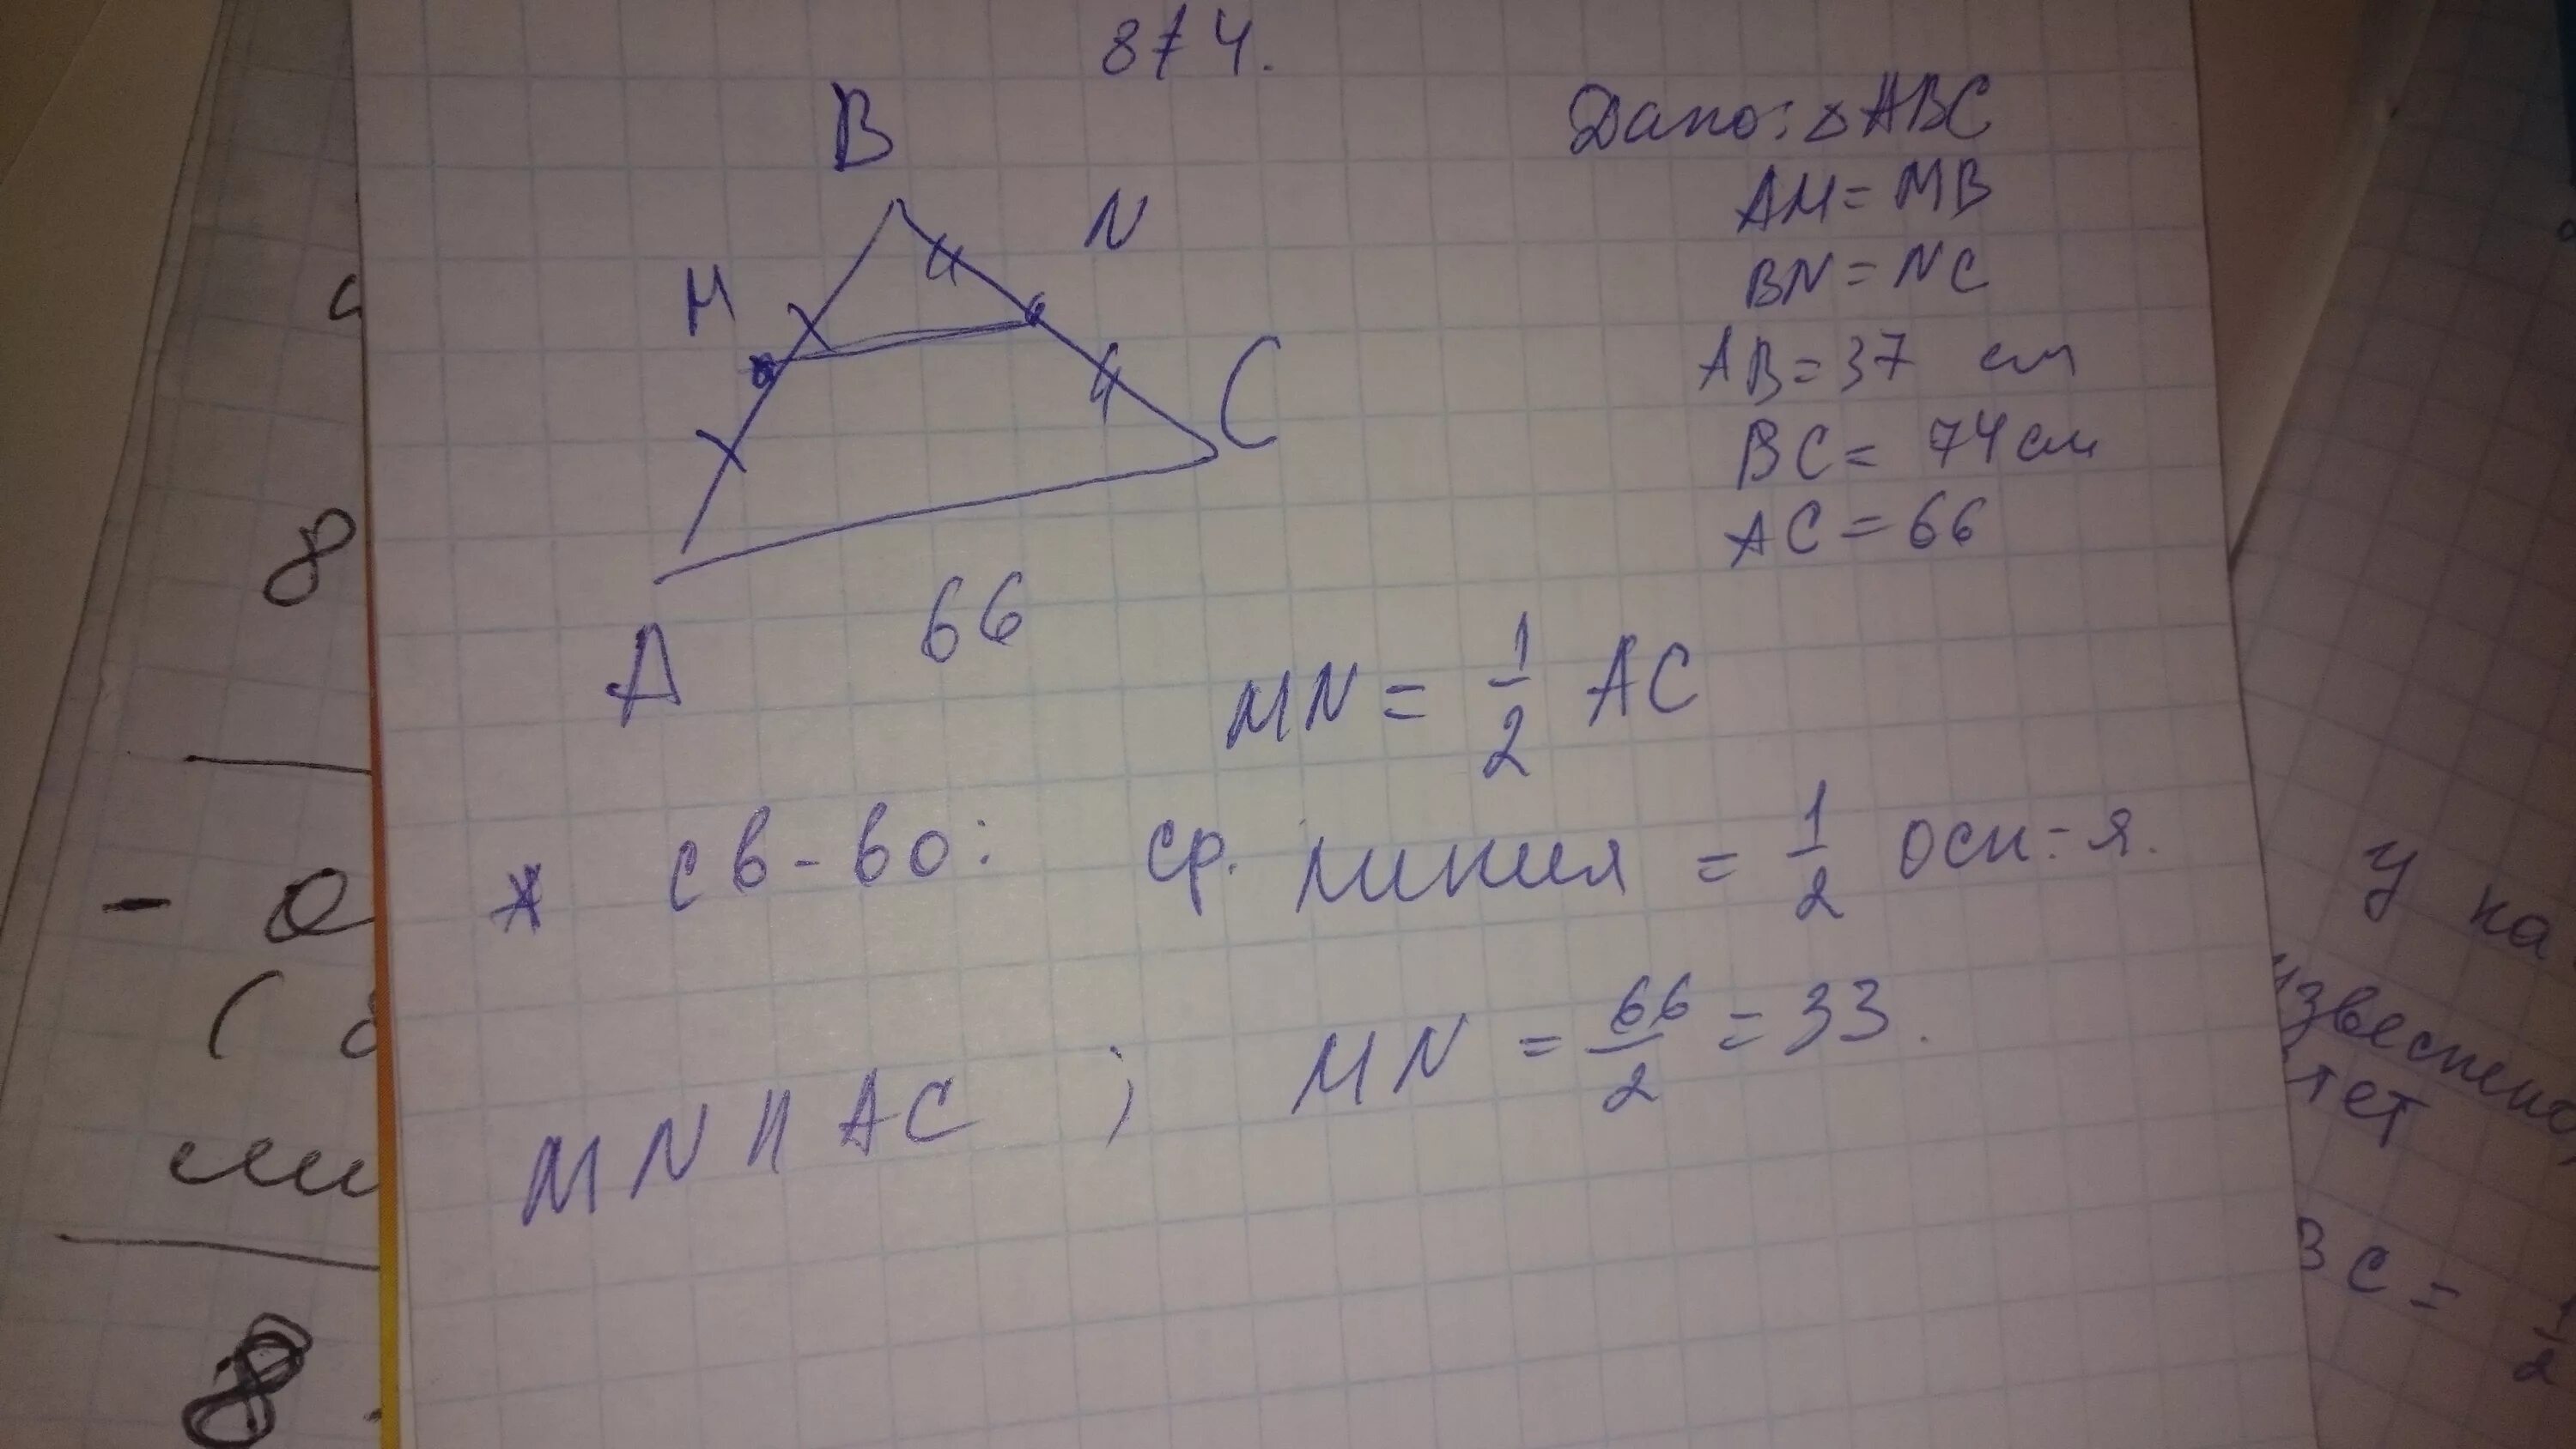 874.
B
N
M
C
A
66
Дано: △ABC
AM = MB
BN = NC
AB = 37 см
BC = 74 см
AC = 66
MN = 1/2 AC
* св-во: ср. линия = 1/2 осн-я.
MN || AC ; MN = 66/2 = 33.
8
8
у
известно,
тет
BC = 1/2